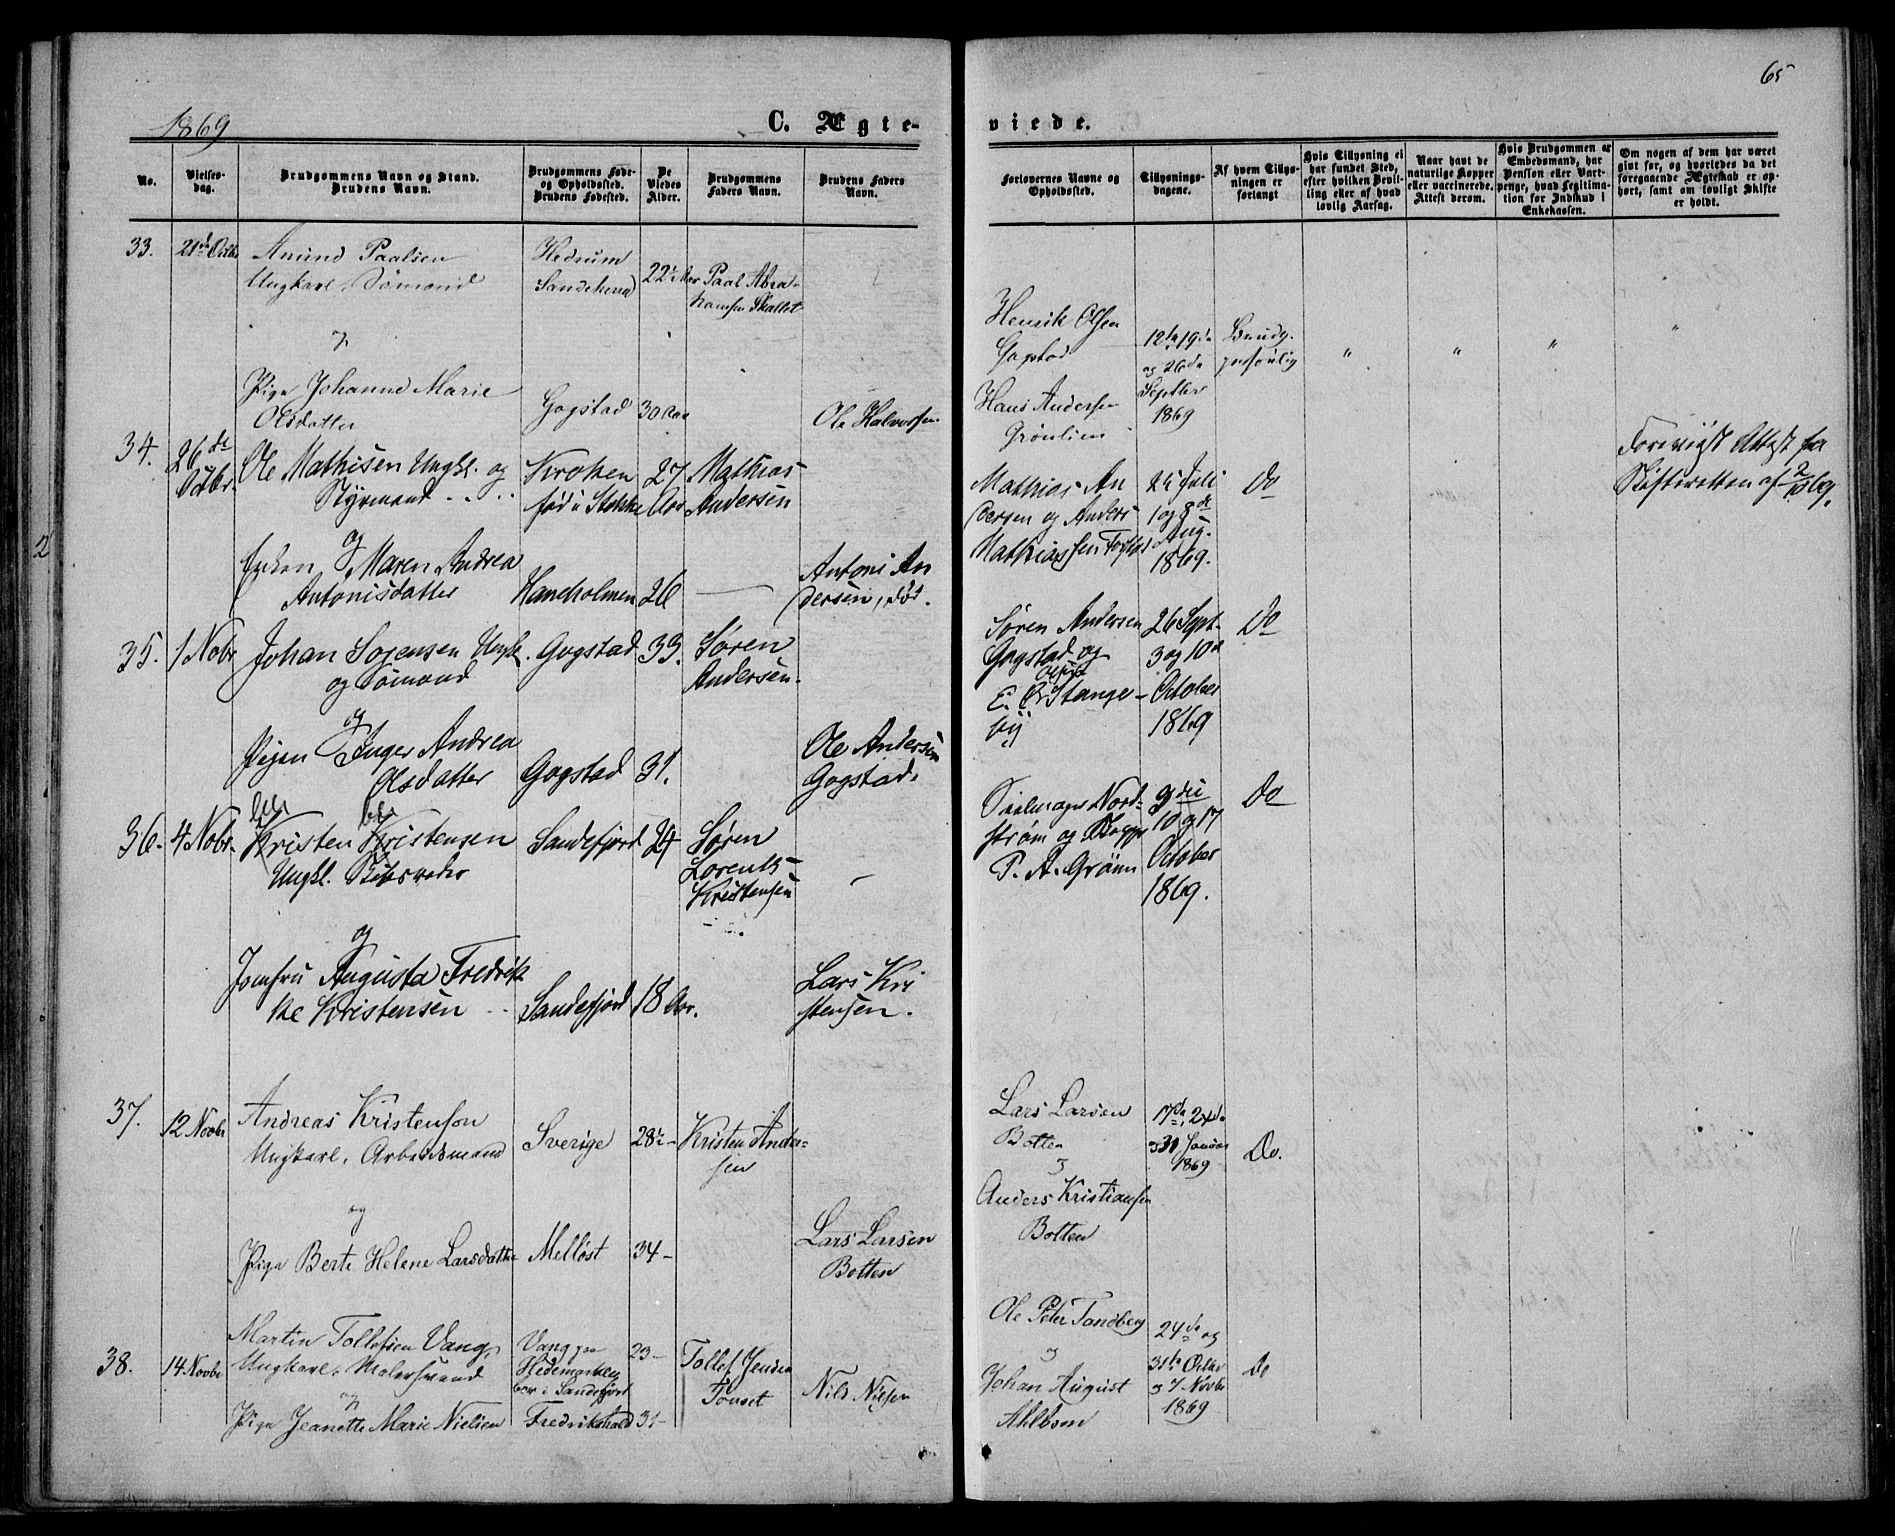 65
1869
C. Ægte-
viede.
No.
Vielses-
dag.
Brudgommens Navn og Stand.
Brudens Navn.
Brudgommens Føde-
og Opholdssted.
Brudens Fødested.
De
Viedes
Alder.
Brudgommens
Faders Navn.
Brudens Faders
Navn.
Forlovernes Navne og
Opholdssted.
Tillysnings-
dagene.
Af hvem Tillys-
ningen er
forlangt
Hvis Tillysning ei
har fundet Sted,
efter hvilken Bevil-
ling eller af hvad
lovlig Aarsag.
Naar havt de
naturlige Kopper
eller vaccinerede.
Attest derom.
Hvis Brudgommen er
Embedsmand, har
Pension eller Vart-
penge, hvad Legitima-
tion for Indskud i
Enkekassen.
Om nogen af dem har været
gift før, og hvorledes da det
foregaaende Ægteskab er op-
hørt, samt om lovligt Skifte
er holdt.
33.
21de Octbr
Amund Paalsen
Ungkarl, Sømand
og
Pige Johanne Marie
Olsdatter
Hedrum
Sandeherred
Gogstad
22½ Aar
30 Aar
Paal Abra-
hamsen Skallet
Ole Halvorsen
Henrik Olsen
Gogstad
Hans Andersen
Grønlien
12te 19de
og 26de
Septbr
1869
Brudg.
personlig
" " " "
34.
26de
Octbr.
Ole Mathisen Ungkl. og
Styrmand
og
Enken, Maren Andrea
Antonisdatter
Kroken
fød i Stokke
27
Aar
26
Mathias
Andersen
Antoni An
dersen, død.
Mathias An
dersen og Anders
Mathiassen
25 Juli
1 og 8de
Aug.
1869.
Do
Forevist Attest fra
Skifteretten af 2/10 69.
35.
1 Nobr
Johan Sørensen Ungk.
og Sømand
og
Pigen Inger Andrea
Olsdatter
Gogstad
Gogstad
33.
31.
Søren
Andersen.
Ole Andersen
Gogstad.
Søren Andersen
Gogstad og
E. Stange-
by
26 Sept.
3 og 10de
October
1869
Do
36.
4 Nobr.
Kristen Kristensen
Ungkl.
og
Jomfru Augusta Fredrik
ke Kristensen
Sandefjord
Sandefjord
24
18 Aar.
Søren
Lorents
Kristensen
Lars Kri
stensen.
Seilmager Nord-
strøm og
P. A. Grønn
3die
10 og 17
October
1869.
Do
37.
12 Novbr
Andreas Kristenson
Ungkarl, Arbeidsmand
og
Pige Berte Helene Larsdatter
Sverige
Melløst
28½-
34-
Kristen Ander-
sen
Lars Larsen
Botten
Lars Larsen
Botten
og
Anders Kristiansen
Botten
17de, 24de
og 31 Januar
1869
Do.
38.
14 Novbr
Martin Tollefsen Vang,
Ungkarl, Malersvend
og
Pige Jeanette Marie Nielsen
Vang paa
Hedemarken
bor i Sandefjord
Fredrikshald
23-
31-
Tollef Jensen
Nils Nilsen
Ole Peter Tandberg
og
Johan August
Ahlbom
24de og
31te Octbr
og 7 Novbr
1869
Do